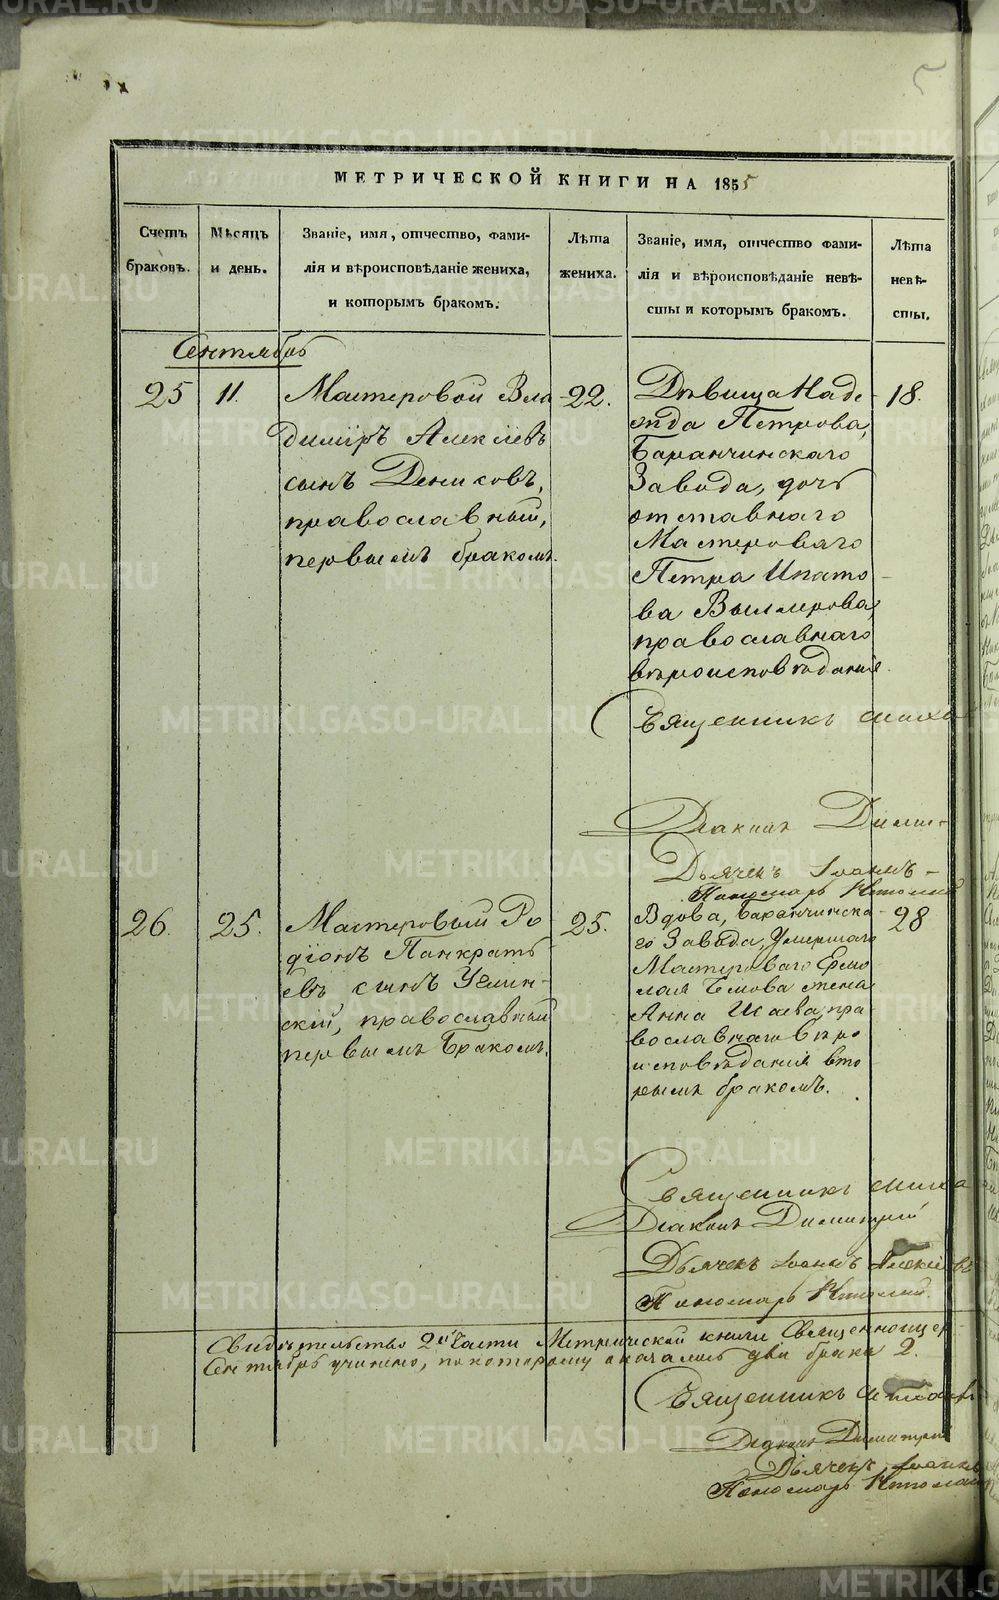 МЕТРИЧЕСКОЙ КНИГИ НА 1855
Счетъ
браковъ.
Мѣсяцъ
и день.
Званіе, имя, отчество, фами-
лія и вѣроисповѣданіе жениха,
и которымъ бракомъ.
Лѣта
жениха.
Званіе, имя, отчество фами-
лія и вѣроисповѣданіе невѣ-
сты и которымъ бракомъ.
Лѣта
невѣ-
сты.
Сентябрь
25
11.
Мастеровой Вла
димiръ Алексѣевъ
сынъ Денисовъ,
православный,
первымъ бракомъ.
22.
Дѣвица Наде
жда Петрова,
Баранчинскаго
Завода, дочь
отставнаго
Мастероваго
Петра Ипато-
ва
православнаго
вѣроисповѣданія.
18.
Священникъ
Діаконъ Дими-
Дьячекъ Іоаннъ
Пономарь
26.
25.
Мастеровый Ро
діонъ Панкрать
евъ сынъ
православный
первымъ бракомъ.
25.
Вдова, Баранчинска-
го Завода, Умершаго
Мастероваго Ермо
лая жена
Анна пра-
вославнаго вѣро
исповѣданія вто
рымъ бракомъ.
28
Священникъ
Діаконъ Димитрій
Дьячекъ Іоаннъ Алексѣевъ
Пономарь
Свидѣтельство 2й Части Метрической книги
Сентябрь учинено, по которому оказалось два брака 2.
Священникъ
Діаконъ Димитрій
Дьячекъ Іоаннъ
Пономарь
METRIKI.GASO-URAL.RU